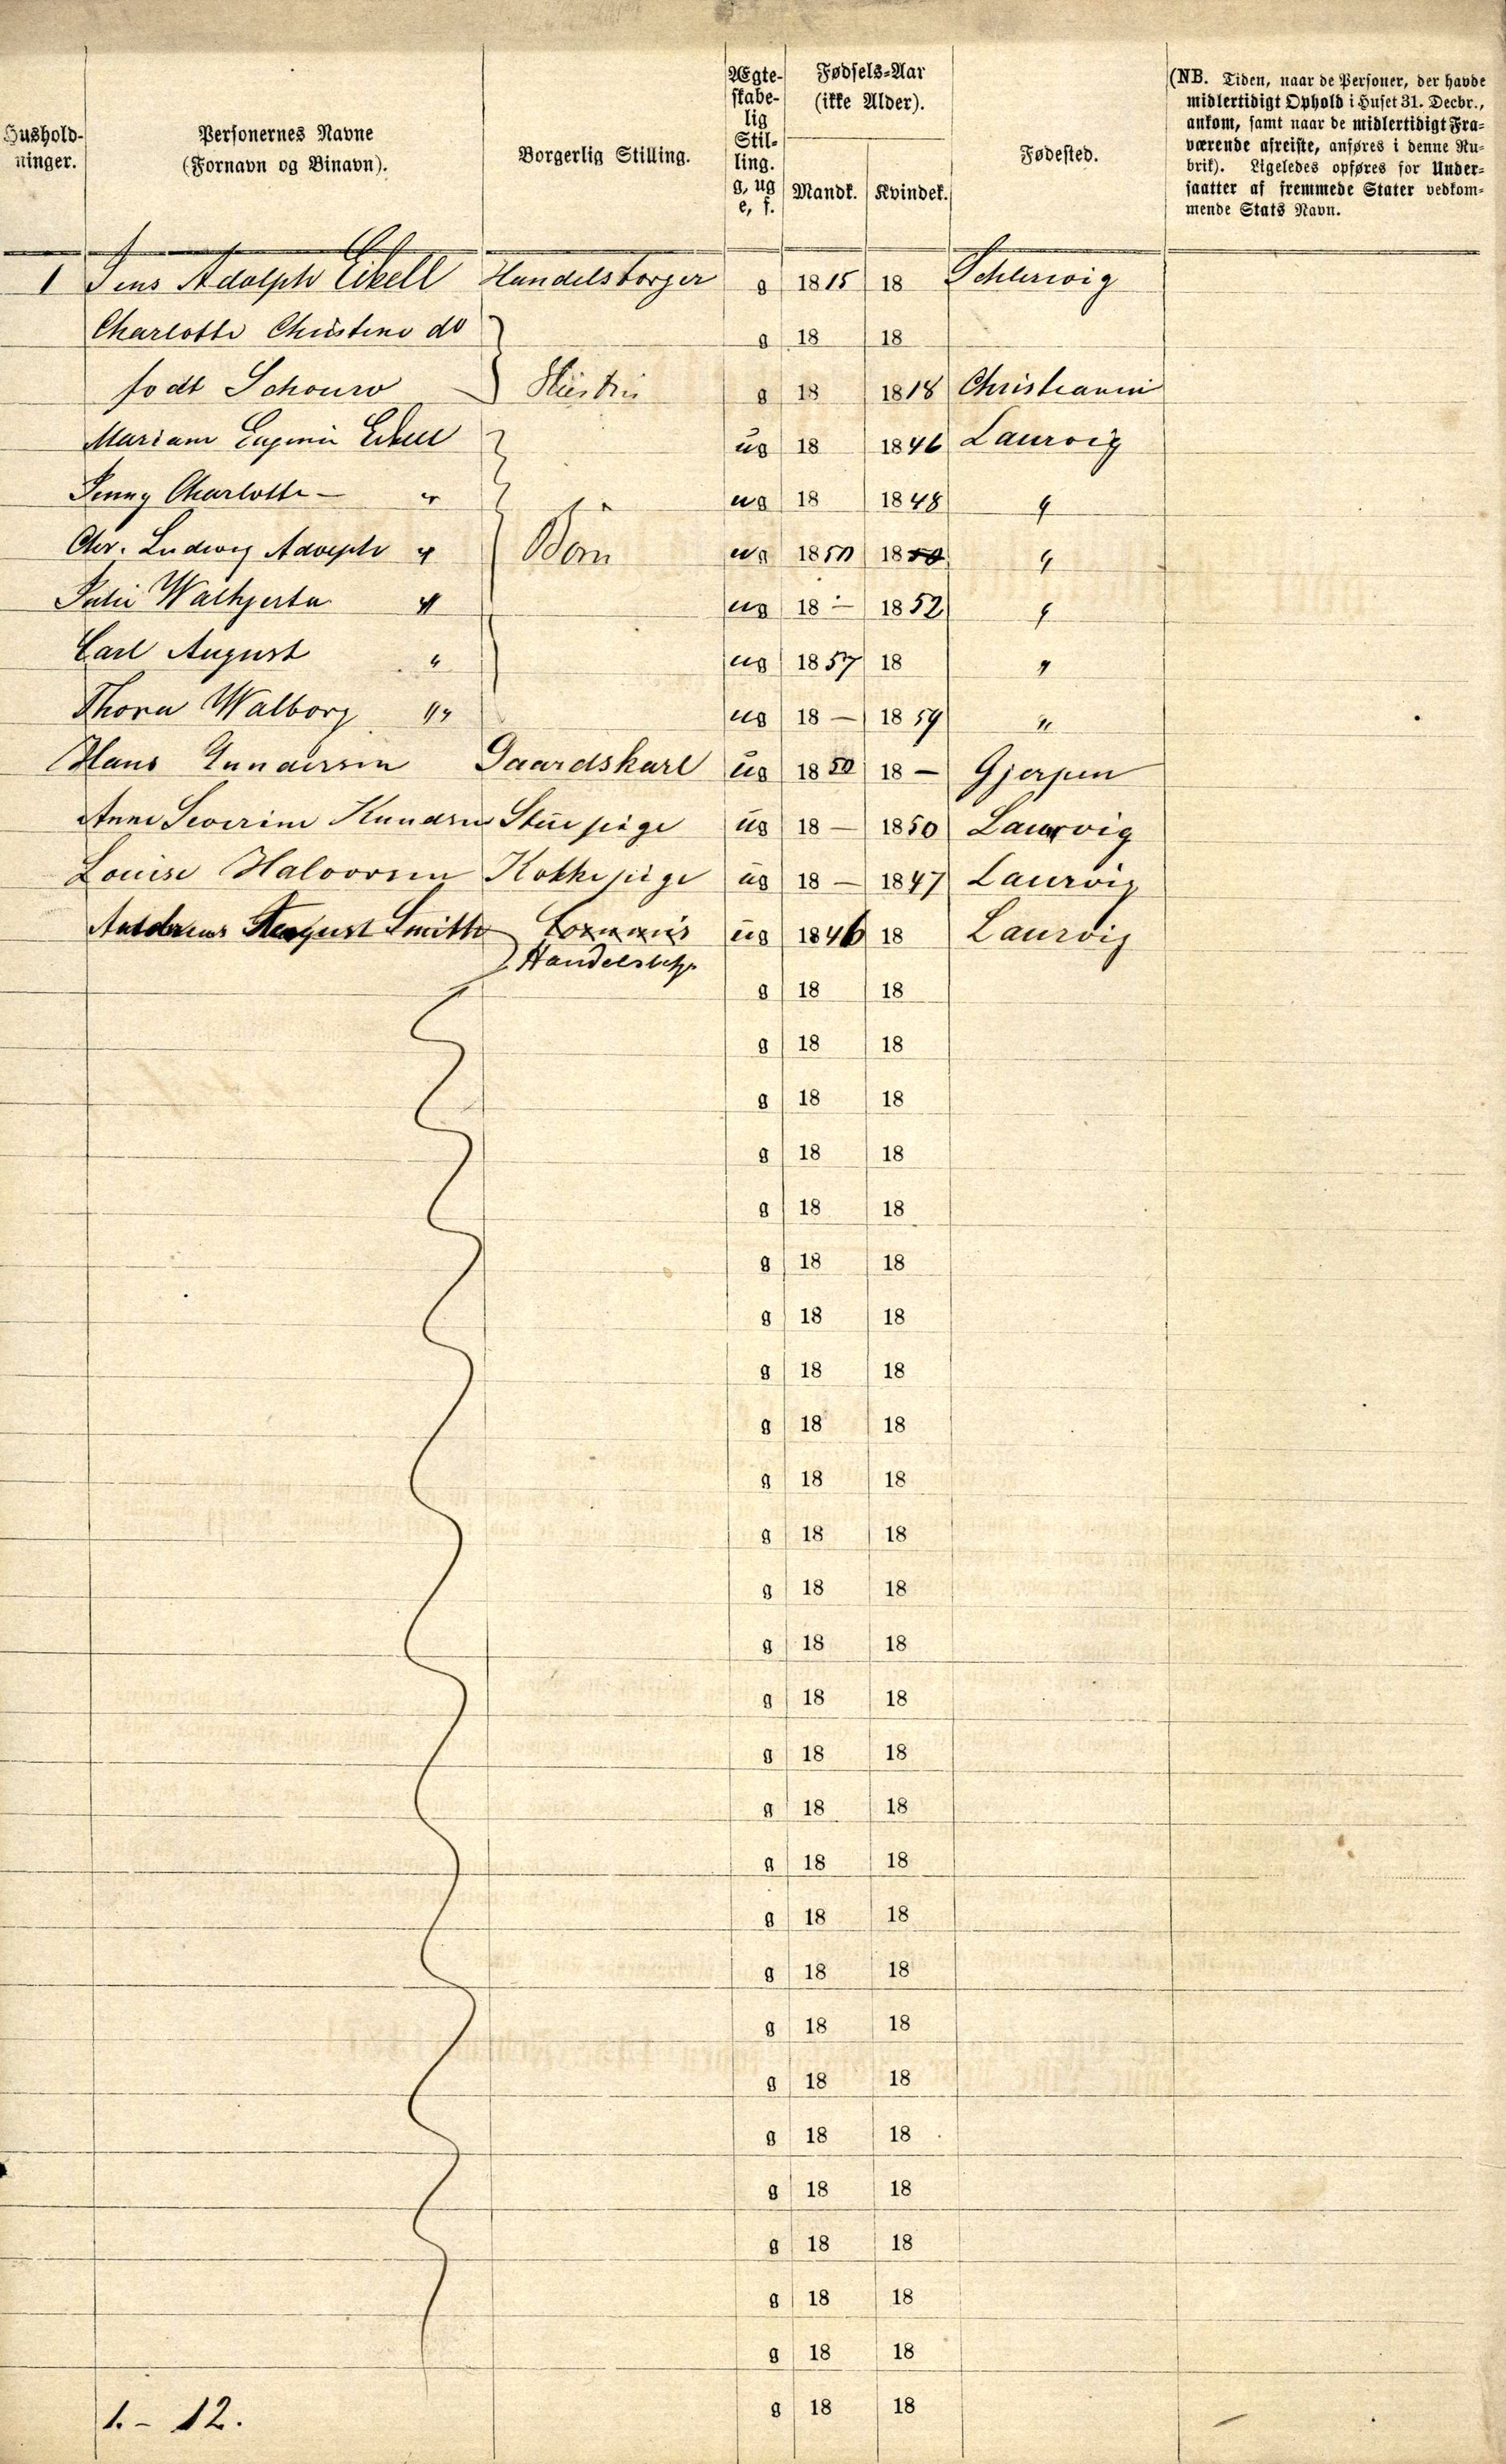 Hushold-
ninger.
Personernes Navne
(Fornavn og Binavn).
Borgerlig Stilling.
Ægte-
skabe-
lig
Stil-
ling.
g, ug
e, f.
Fødsels-Aar
(ikke Alder).
Mandk. Kvindek.
Fødested.
(NB. Tiden, naar de Personer, der havde
midlertidigt Ophold i Huset 31. Decbr.,
ankom, samt naar de midlertidigt Fra-
værende afreiste, anføres i denne Ru-
brik). Ligeledes opføres for Under-
saatter af fremmede Stater vedkom-
mende Stats Navn.
1 Jens Adolph Eckell Handelsborger g 1815 18 Schleswig
Charlotte Christine do g 18 18
født Schouw Hustru g 18 1818 Christiania
Mariane Eugenie Eckell ug 18 1846 Laurvig
Jenny Charlotte — " ug 18 1848 "
Chr. Ludwig Adolph " Børn ug 1850 1850 "
Julie Walhjerta " ug 18 - 1852 "
Carl August " ug 1857 18 "
Thora Walborg " ug 18 — 1859 "
Hans Gundersen Gaardskarl ug 1850 18 — Gjerpen
Anne Severine Knudsen Stuepige ug 18 — 1850 Laurvig
Louise Halvorsen Kokkepige ug 18 — 1847 Laurvig
Andreas August Smith Commis ug 1846 18 Laurvig
Handelsbetj.
g 18 18
g 18 18
g 18 18
g 18 18
g 18 18
g 18 18
g 18 18
g 18 18
g 18 18
g 18 18
g 18 18
g 18 18
g 18 18
g 18 18
g 18 18
g 18 18
g 18 18
g 18 18
g 18 18
g 18 18
g 18 18
g 18 18
g 18 18
g 18 18
g 18 18
g 18 18
g 18 18
1. - 12.